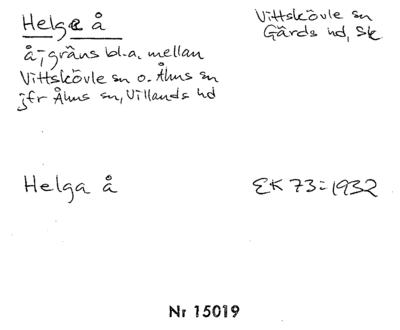 Helge å
Vittskövle sn
Gärds hd, Sk
å; gräns bl.a. mellan
Vittskövle sn o. Åhus sn
jfr Åhus sn, Villands hd
Helga å
EK 73:1932
Nr 15019